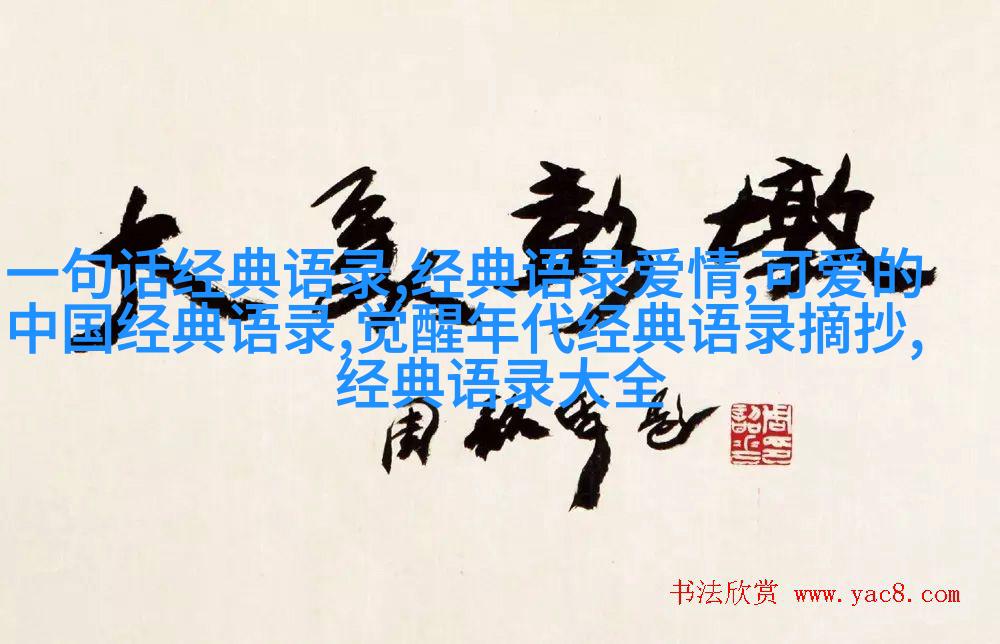 大美彭墩
一句话经典语录,经典语录爱情,可爱的
中国经典语录,觉醒年代经典语录摘抄,
经典语录大全
周韶华题
书法欣赏 www.yac8.com